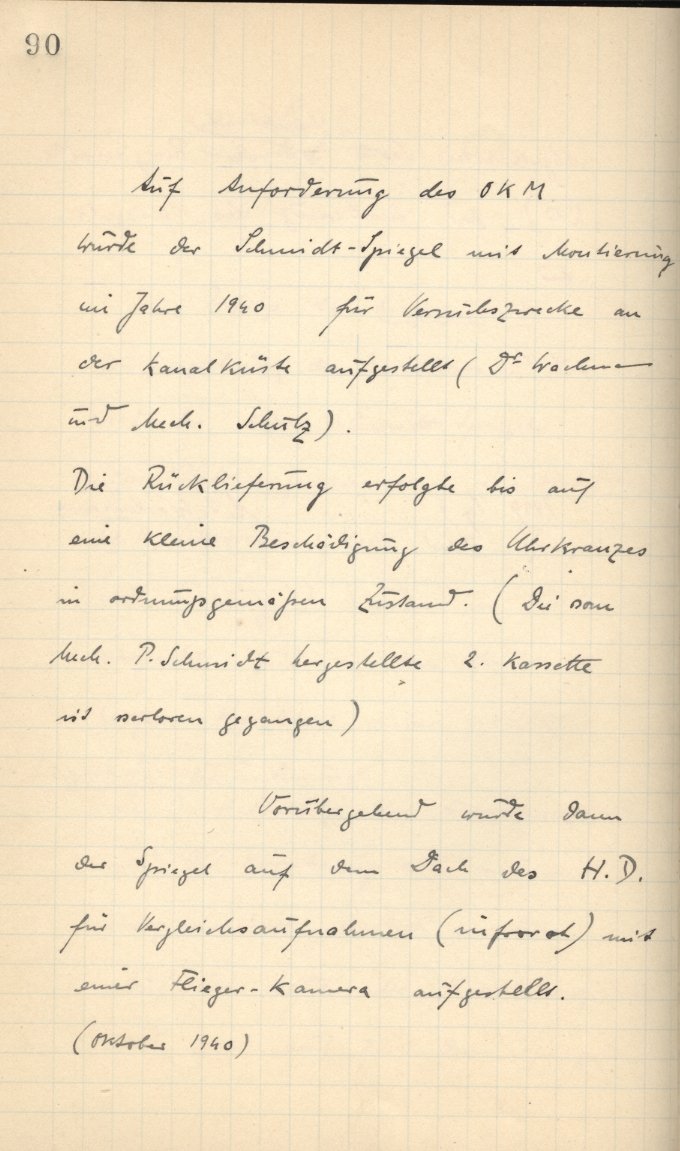 90
Auf Anforderung des OKM
wurde der Schmidt-Spiegel mit Montierung
im Jahre 1940 für Versuchszwecke an
der Kanalküste aufgestellt (Dr Wachmann
und Mech. Schulz).
Die Rücklieferung erfolgte bis auf
eine kleine Beschädigung des Uhrkranzes
in ordnungsgemäßen Zustand. (Die vom
Mech. P. Schmidt hergestellte 2. Kassette
ist verloren gegangen)
Vorübergehend wurde dann
der Spiegel auf dem Dach des H.D.
für Vergleichsaufnahmen (infrarot) mit
einer Flieger-Kamera aufgestellt.
(Oktober 1940)